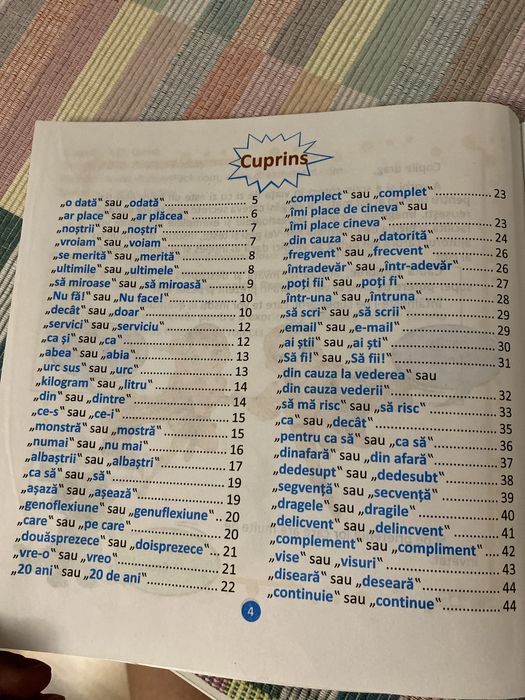 Cuprins
„o dată" sau „odată" ........ 5
„ar place" sau „ar plăcea" ........ 6
„noștrii" sau „noștri" ........ 7
„vroiam" sau „voiam" ........ 7
„se merită" sau „merită" ........ 8
„ultimile" sau „ultimele" ........ 8
„să miroase" sau „să miroasă" ........ 9
„Nu fă!" sau „Nu face!" ........ 10
„decât" sau „doar" ........ 10
„servici" sau „serviciu" ........ 12
„ca și" sau „ca" ........ 12
„abea" sau „abia" ........ 13
„urc sus" sau „urc" ........ 13
„kilogram" sau „litru" ........ 14
„din" sau „dintre" ........ 14
„ce-s" sau „ce-i" ........ 15
„monstră" sau „mostră" ........ 15
„numai" sau „nu mai" ........ 16
„albaștrii" sau „albaștri" ........ 17
„ca să" sau „să" ........ 19
„așază" sau „așează" ........ 19
„genoflexiune" sau „genuflexiune" .. 20
„care" sau „pe care" ........ 20
„douăsprezece" sau „doisprezece" . 21
„vre-o" sau „vreo" ........ 21
„20 ani" sau „20 de ani" ........ 22
„complect" sau „complet" ........ 23
„îmi place de cineva" sau
„îmi place cineva" ........ 23
„din cauza" sau „datorită" ........ 24
„fregvent" sau „frecvent" ........ 26
„întradevăr" sau „într-adevăr" ........ 26
„poți fii" sau „poți fi" ........ 27
„într-una" sau „întruna" ........ 28
„să scri" sau „să scrii" ........ 29
„email" sau „e-mail" ........ 29
„ai știi" sau „ai ști" ........ 30
„Să fi!" sau „Să fii!" ........ 31
„din cauza la vederea" sau
„din cauza vederii" ........ 32
„să mă risc" sau „să risc" ........ 33
„ca" sau „decât" ........ 35
„pentru ca să" sau „ca să" ........ 36
„dinafară" sau „din afară" ........ 37
„dedesupt" sau „dedesubt" ........ 38
„segvență" sau „secvență" ........ 39
„dragele" sau „dragile" ........ 40
„delicvent" sau „delincvent" ........ 41
„complement" sau „compliment" ... 42
„vise" sau „visuri" ........ 43
„diseară" sau „deseară" ........ 44
„continuie" sau „continue" ........ 44
4